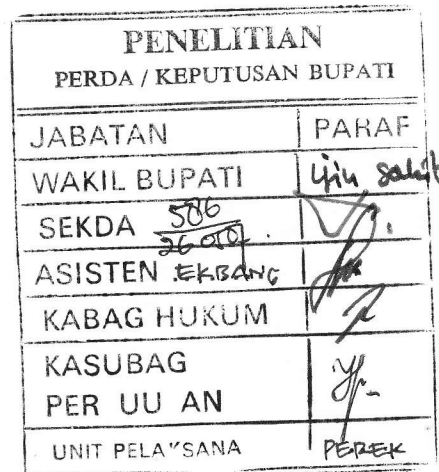 PENELITIAN
PERDA / KEPUTUSAN BUPATI
JABATAN PARAF
WAKIL BUPATI ijin sakit
SEKDA 586
ASISTEN EKBANG
KABAG HUKUM
KASUBAG
PER UU AN
UNIT PELA"SANA PEREK